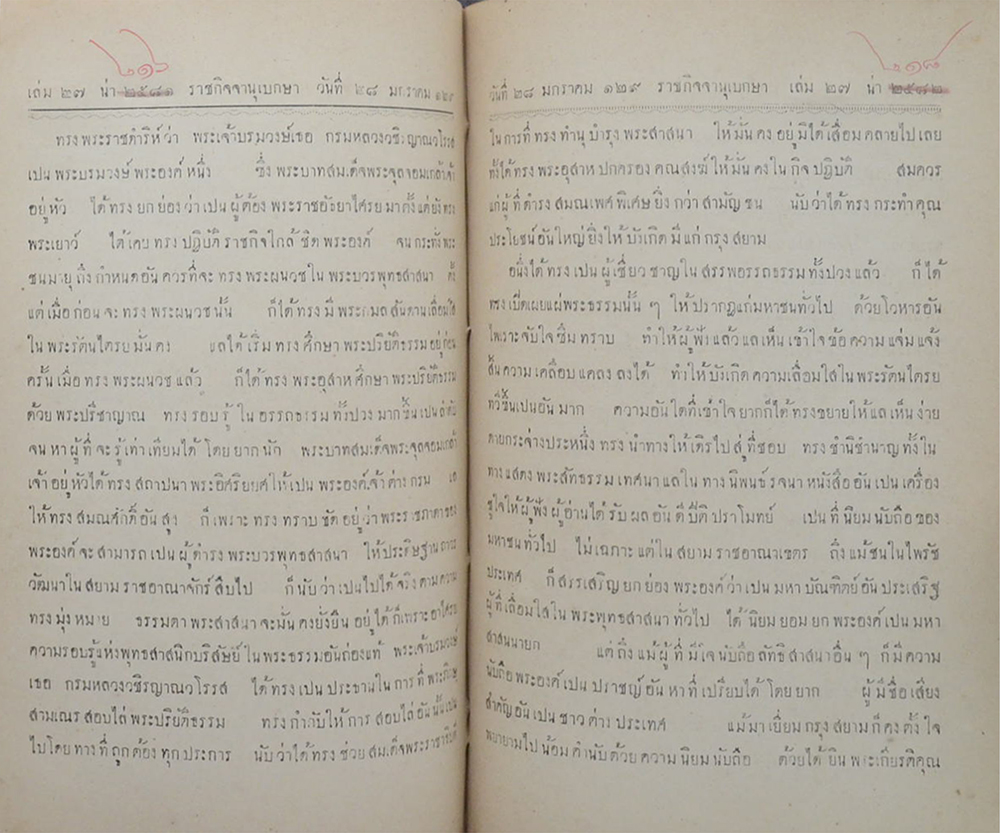 ๒๑๖
เล่ม ๒๗ น่า ๒๕๘๑ ราชกิจจานุเบกษา วันที่ ๒๘ มกราคม ๑๒๙
ทรงพระราชดำริห์ว่า พระเจ้าบรมวงษ์เธอ กรมหลวงวชิรญาณวโรรส
เปน พระบรมวงษ์ พระองค์ หนึ่ง ซึ่ง พระบาทสมเด็จพระจุลจอมเกล้าเจ้า
อยู่หัว ได้ทรง ยกย่อง ว่าเปน ผู้ต้อง พระราชอัธยาไศรย มาตั้งแต่ยังทรง
พระเยาว์ ได้เคย ทรง ปฏิบัติ ราชกิจใกล้ ชิด พระองค์ จนกระทั่งพระ
ชนมายุ ถึง กำหนดอัน ควรที่จะ ทรง พระผนวช ใน พระบวรพุทธสาสนา ตั้ง
แต่เมื่อ ก่อน จะ ทรง พระผนวช นั้น ก็ได้ ทรง มี พระกมลสันดานเลื่อมใส
ใน พระรัตนไตรย มั่น คง แลได้ เริ่ม ทรง ศึกษา พระปริยัติธรรมอยู่ก่อน
ครั้น เมื่อ ทรง พระผนวช แล้ว ก็ได้ ทรง พระอุสาหศึกษาพระปริยัติธรรม
ด้วย พระปรีชาญาณ ทรง รอบ รู้ ใน อรรถธรรม ทั้งปวง มากขึ้นเปนลำดับ
จน หา ผู้ ที่ จะ รู้ เท่า เทียมได้ โดย ยาก นัก พระบาทสมเด็จพระจุลจอมเกล้า
เจ้า อยู่ หัวได้ ทรง สถาปนา พระอิศริยยศ ให้เปน พระองค์เจ้า ต่าง กรม
ให้ทรง สมณศักดิ์ อัน สูง ก็ เพราะ ทรง ทราบ ชัด อยู่ ว่า พระราชภาดาของ
พระองค์ จะ สามารถ เปน ผู้ ดำรง พระบวรพุทธสาสนา ให้ประดิษฐานถาวร
วัฒนาใน สยาม ราชอาณาจักร์ สืบไป ก็ นับ ว่า เปนไปได้ จริง ตามความ
ทรง มุ่ง หมาย ธรรมดา พระสาสนา จะมั่น คงยั่งยืน อยู่ ได้ ก็เพราะอาไศรย
ความรอบรู้แห่งพุทธสาสนิกบริสัษย์ ในพระธรรมอันถ่องแท้ พระเจ้าบรมวงษ์
เธอ กรมหลวงวชิรญาณวโรรส ได้ทรง เปน ประธานใน การ ที่ พระภิกษุ
สามเณร สอบไล่ พระปริยัติธรรม ทรง กำกับให้ การ สอบไล่ อัน นั้นเปน
ไปโดย ทาง ที่ ถูก ต้อง ทุก ประการ นับ ว่าได้ ทรง ช่วย สมเด็จพระราชาธิบดี
๒๑๘
วันที่ ๒๘ มกราคม ๑๒๙ ราชกิจจานุเบกษา เล่ม ๒๗ น่า ๒๕๘๒
ในการที่ ทรง ทำนุ บำรุง พระสาสนา ให้ มั่น คง อยู่ มิได้ เสื่อม คลายไป เลย
ทั้งได้ ทรง พระอุสาห ปกครอง คณสงฆ์ ให้ มั่น คงใน กิจ ปฏิบัติ สมควร
แก่ผู้ ที่ ดำรง สมณเพศ พิเศษ ยิ่ง กว่า สามัญ ชน นับ ว่าได้ ทรง กระทำ คุณ
ประโยชน์ อันใหญ่ ยิ่งให้ บังเกิด มี แก่ กรุง สยาม
อนึ่งได้ ทรง เปน ผู้เชี่ยว ชาญใน สรรพอรรถธรรม ทั้งปวง แล้ว ก็ ได้
ทรง เปิดเผยแผ่ พระธรรม นั้น ๆ ให้ ปรากฏแก่มหาชนทั่วไป ด้วยโวหารอัน
ไพเราะ จับใจ ซึม ทราบ ทำให้ ผู้ฟัง แล้ว แล เห็น เข้าใจ ข้อ ความ แจ่ม แจ้ง
สิ้น ความ เคลือบ แคลง ลงได้ ทำให้ บังเกิด ความ เลื่อมใสใน พระรัตนไตรย
ทวีขึ้นเปนอัน มาก ความอันใดที่เข้าใจ ยากก็ได้ ทรงขยายให้แล เห็น ง่าย
ดายกระจ่างประหนึ่ง ทรง นำทางให้เดิรไป สู่ ที่ชอบ ทรง ชำนิชำนาญ ทั้งใน
ทาง แสดง พระสัทธรรม เทศนา แลใน ทาง นิพนธ์ รจนา หนังสือ อัน เปน เครื่อง
ชูใจให้ ผู้ฟัง ผู้อ่านได้ รับ ผล อัน ดี ปีติ ปราโมทย์ เปน ที่ นิยม นับถือ ของ
มหาชนทั่วไป ไม่เฉภาะ แต่ใน สยาม ราชอาณาเขตร ถึง แม้ ชนในไพรัช
ประเทศ ก็ สรรเสริญ ยก ย่อง พระองค์ ว่า เปน มหา บัณฑิตย์ อัน ประเสริฐ
ผู้ที่เลื่อมใสใน พระพุทธสาสนา ทั่วไป ได้ นิยม ยอม ยก พระองค์ เปน มหา
สาสนนายก แต่ ถึง แม้ ผู้ ที่ มีใจ นับถือ ลัทธิ สาสนา อื่น ๆ ก็ มี ความ
นับถือ พระองค์ เปน ปราชญ์ อัน หา ที่ เปรียบได้ โดย ยาก ผู้ มี ชื่อ เสียง
สำคัญ อัน เปน ชาว ต่าง ประเทศ แม้มา เยี่ยม กรุง สยาม ก็ คง ตั้ง ใจ
พยายามไป น้อม คำนับ ด้วย ความ นิยม นับถือ ด้วยได้ ยิน พระเกียรติคุณ